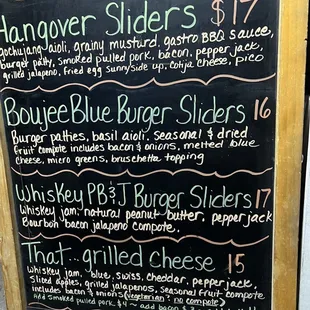 Hangover Sliders $17
gochujang aioli, grainy mustard, gastro BBQ sauce,
burger patty, smoked pulled pork, bacon, pepper jack,
grilled jalapeno, fried egg sunny side up, cotija cheese, pico
Boujee Blue Burger Sliders 16
Burger patties, basil aioli. Seasonal & dried
fruit compote includes bacon & onions, melted blue
cheese, micro greens, bruschetta topping
Whiskey PB&J Burger Sliders 17
Whiskey jam, natural peanut butter, pepperjack
Bourbon bacon jalapeno compote,
That...grilled Cheese 15
Whiskey jam, blue, swiss, cheddar, pepperjack,
Sliced apples, grilled jalapenos, seasonal fruit compote
includes bacon & onions (vegetarian? no compote)
Add smoked pulled pork $4 ~ add bacon $3